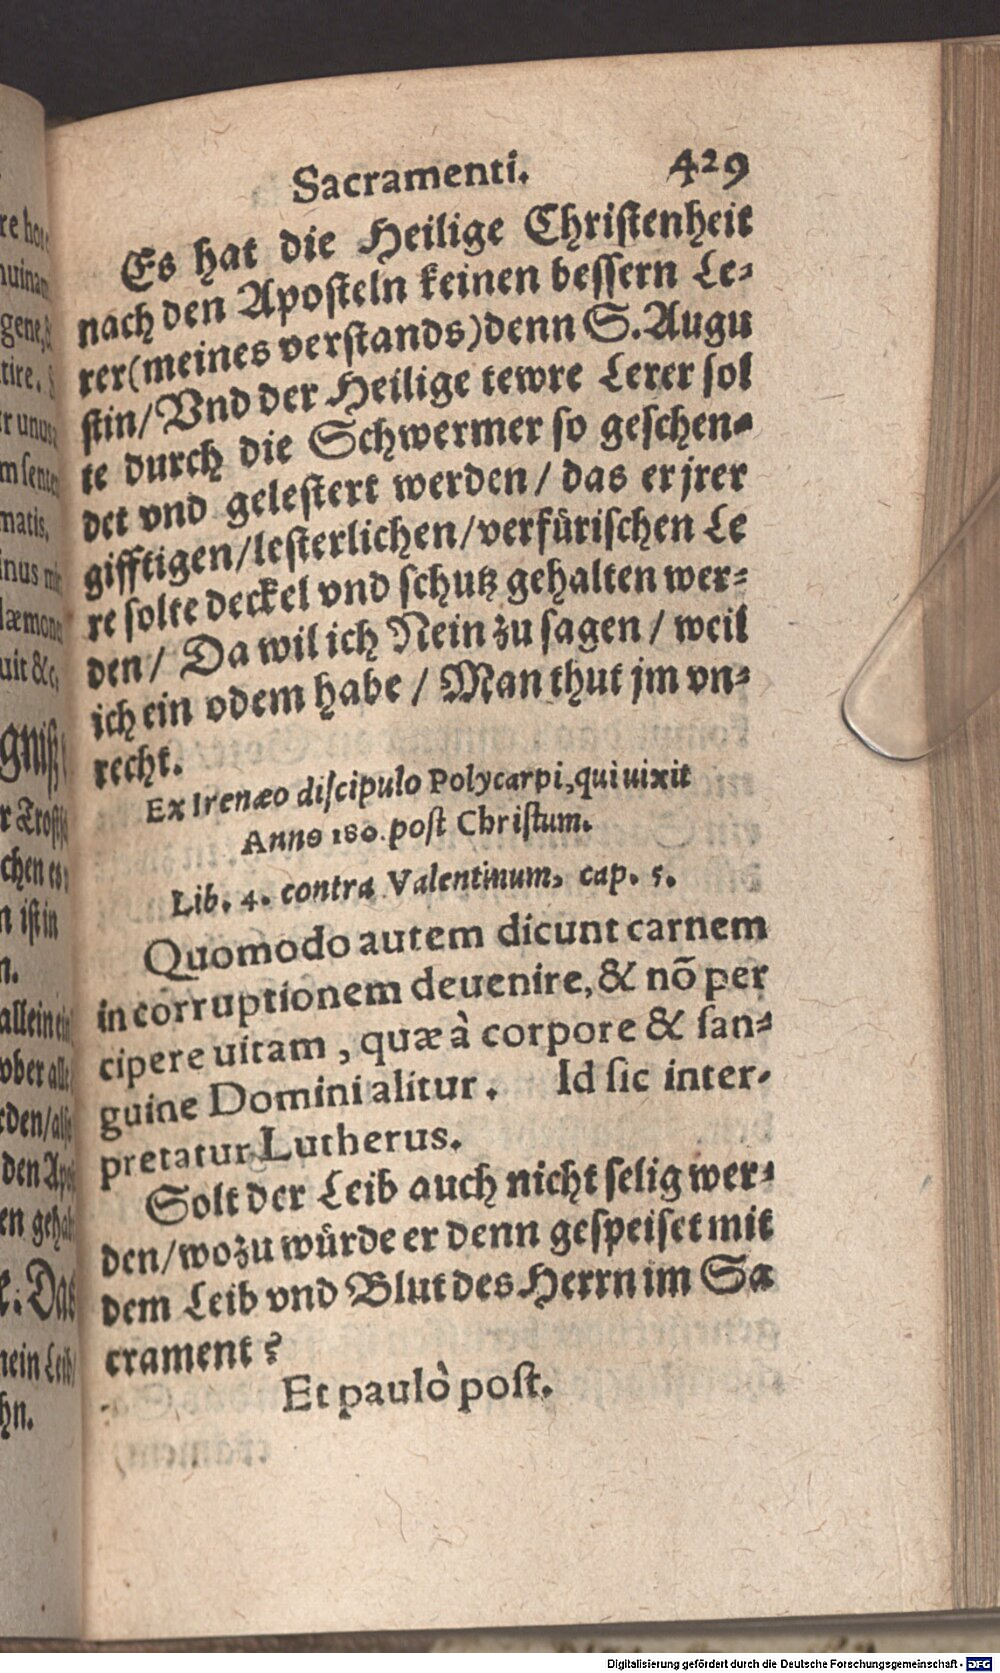 Sacramenti. 429
Es hat die Heilige Christenheit
nach den Aposteln keinen bessern Le-
rer(meines verstands)denn S.Augu
stin/Vnd der Heilige tewre Lerer sol
te durch die Schwermer so geschen-
det vnd gelestert werden/ das er jrer
gifftigen/lesterlichen/verfürischen Le
re solte deckel vnd schutz gehalten wer-
den/ Da wil ich Nein zu sagen/ weil
ich ein odem habe/ Man thut jm vn-
recht.
Ex Irenæo discipulo Polycarpi, qui uixit
Anno 180. post Christum.
Lib. 4. contra Valentinum, cap. 5.
Quomodo autem dicunt carnem
in corruptionem deuenire, & nõ per
cipere uitam, quæ à corpore & san-
guine Domini alitur. Id sic inter-
pretatur Lutherus.
Solt der Leib auch nicht selig wer-
den/wozu würde er denn gespeiset mit
dem Leib vnd Blut des Herrn im Sa
crament?
Et paulò post.
Digitalisierung gefördert durch die Deutsche Forschungsgemeinschaft - DFG